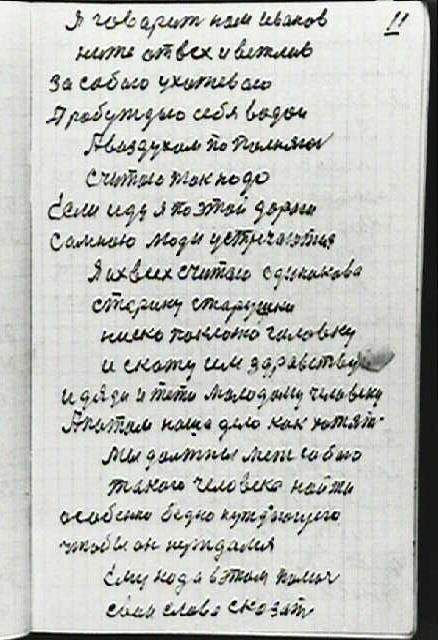 11
Я говарит нам Иванов
ниже отвсх и вежлив
За сабаю ухажеваю
Прабуждаю себя вадои
Аваздухам по полняюс
считаю так надо
Если иду я по этой дароги
Самною люди устречаются
Я их всех считаю одинакова
старику старушки
ниско паклано галовку
и скажу им здравствуй
и дяди и тети маладому человеку
Апатом наша дело как хатят
Мы должны меж сабаю
такога человека найти
особенно бедно нуждующего
чтобы он нуждался
Ему нада вэтом памоч
сваи слава сказат